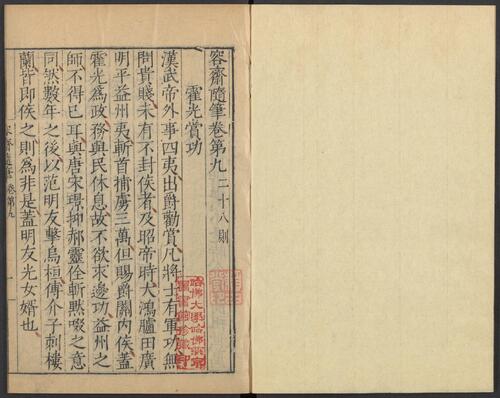 容齋隨筆卷第九 二十八則
霍光賞功
漢武帝外事四夷出爵勸賞凡將士有軍功無
問貴賤未有不封侯者及昭帝時大鴻臚田廣
明平益州夷斬首捕虜三萬但賜爵關內侯蓋
霍光為政務與民休息故不欲求邊功益州之
師不得已耳與唐宋璟抑郝靈佺斬默啜之意
同然數年之後以范明友擊烏桓傅介子刺樓
蘭皆即侯之則為非是蓋明友光女婿也
容齋隨筆 卷第九
一
哈佛大學哈佛燕京
圖書館珍藏印